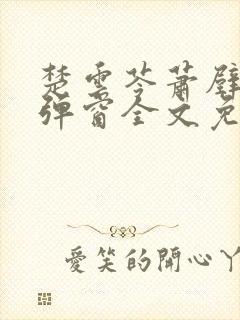 楚云苓萧壁
弹窗全文免
爱笑的开心丫